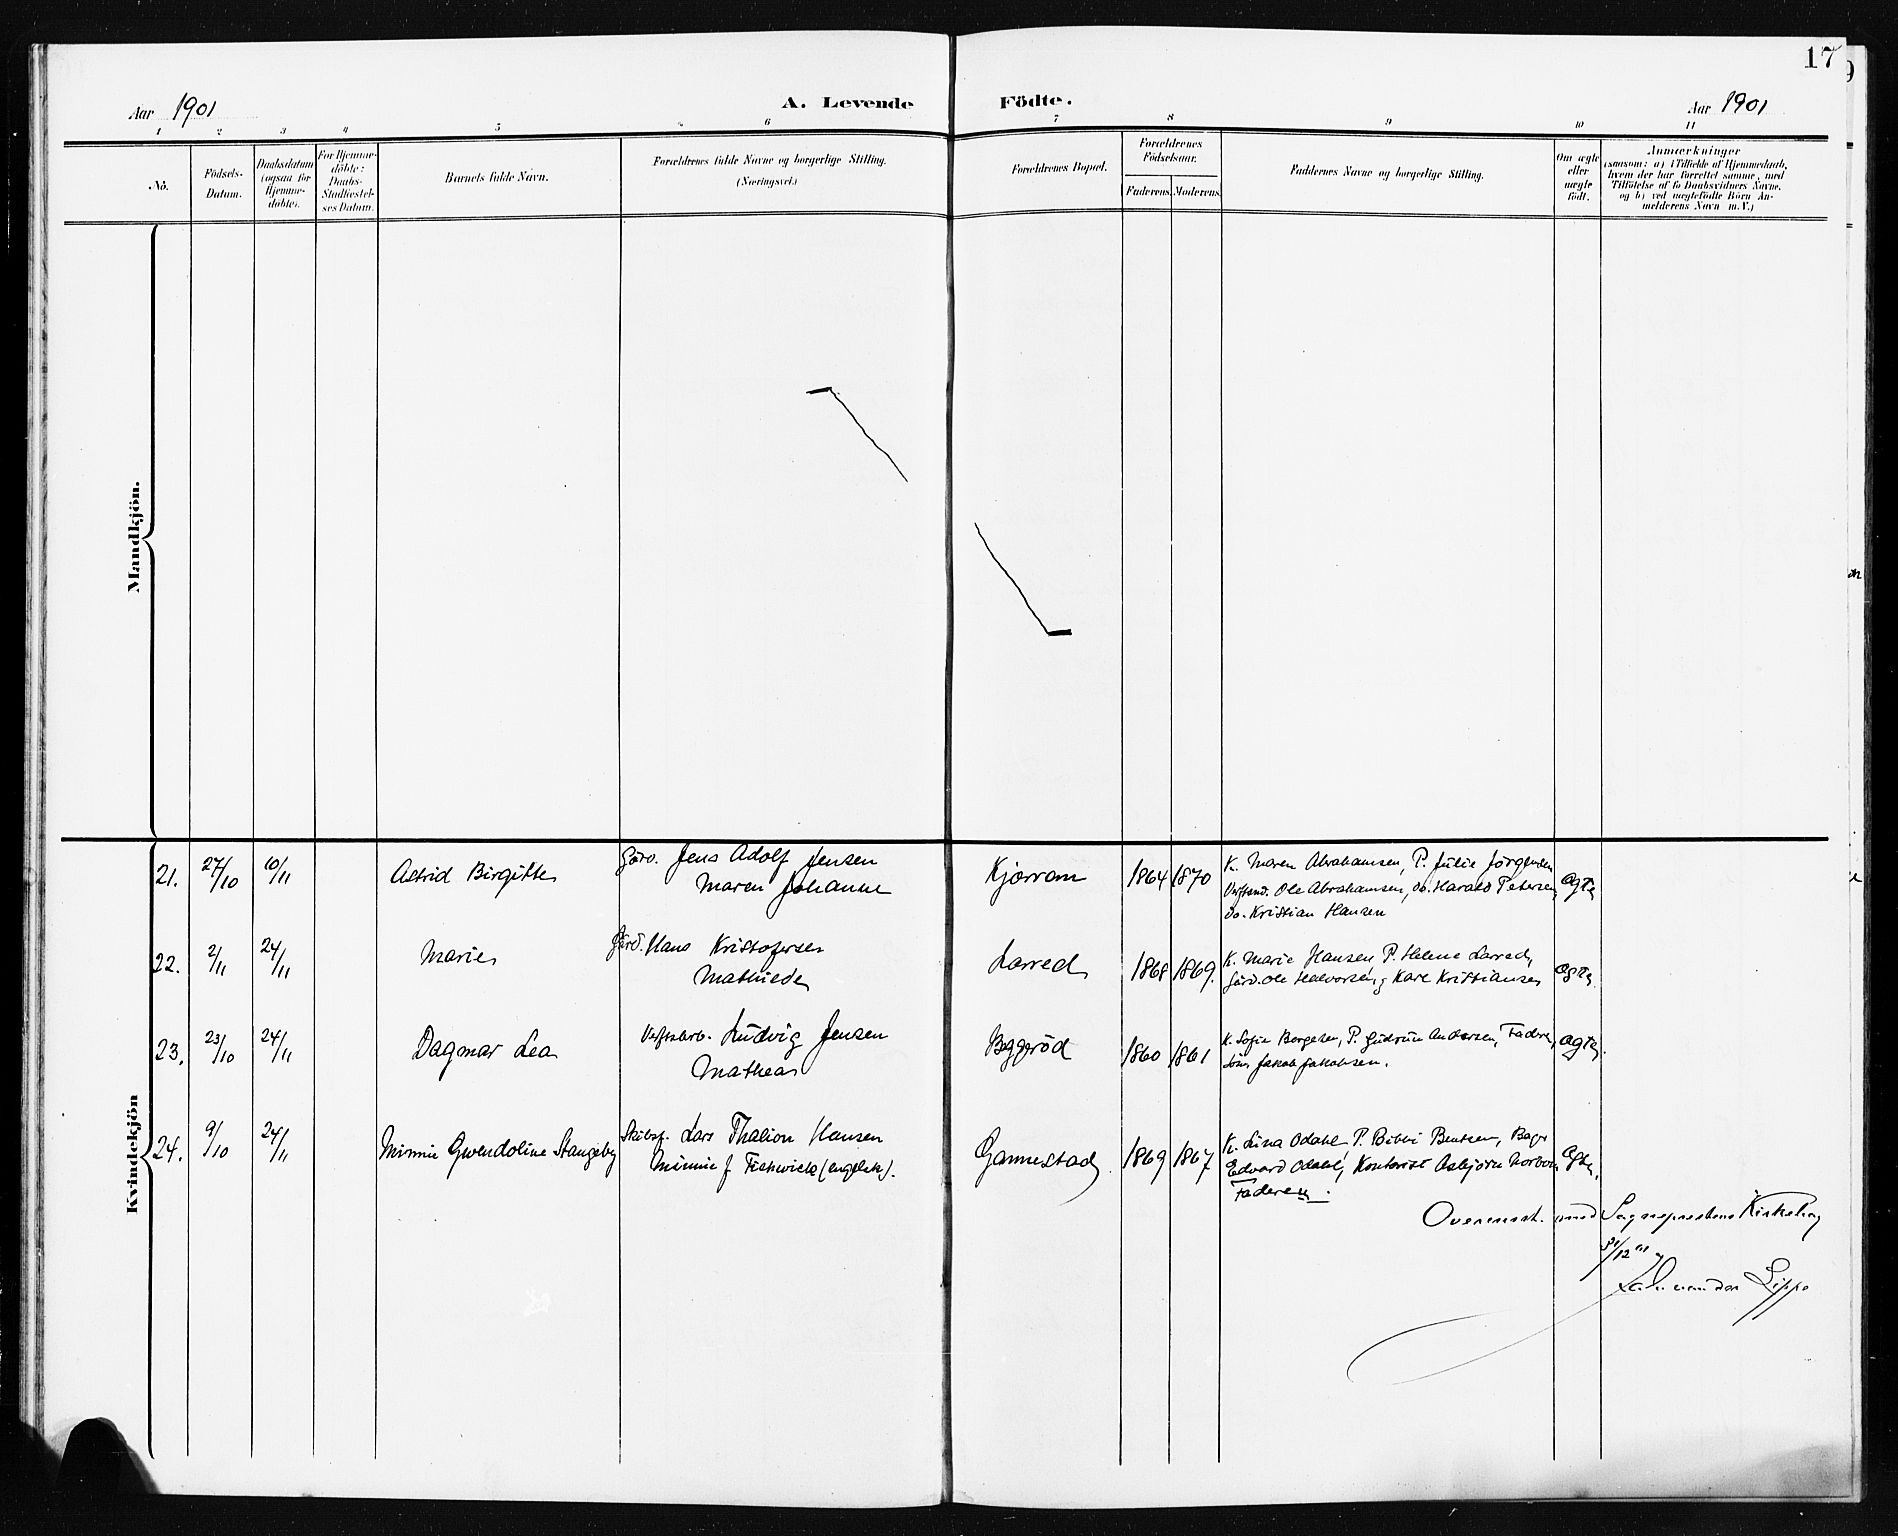 17
Aar 1901
A. Levende Födte.
Aar 1901
1 2 3 4 5 6 7 8 9 10 11
Nô.
Födsels-
Datum.
Daabsdatum
(ogsaa for
Hjemme-
døbte).
For Hjemme-
döbte:
Daabs-
Stadfæstel-
ses Datum.
Barnets fulde Navn.
Forældrenes fulde Navne og borgerlige Stilling.
(Næringsvei.)
Forældrenes Bopæl.
Forældrenes
Födselsaar.
Faderens. Moderens.
Faddernes Navne og borgerlige Stilling.
Om ægte
eller
uægte
född.
Anmærkninger
(saasom: a) i Tilfælde af Hjemmedaab,
hvem der har forrettet samme, med
Tilföielse af to Daabsvidners Navne,
og b) ved uægtefödte Börn An-
melderens Navn m. V.)
Mandkjön.
Kvindekjön
21. 27/10 10/11 Astrid Birgitte Gårv. Jens Adolf Jensen Kjærran 1864 1870 K. Maren Abrahamsen, P. Julie Jørgensen ægte
Maren Johanne
Verftsm. Ole Abrahamsen, do. Harald Petersen,
do. Kristian Hansen
22. 2/11 24/11 Marie Hans Kristofersen Larred 1868 1869. K. Marie Hansen P. Helene Larred, ægte
Mathilde
Ole Halvorsen, Karl Kristiansen
23. 23/10 24/11 Dagmar Lea Verftsarb. Ludvig Jensen Beggerød 1860 1861 K. Sofie Borgesen, P. Gudrun Andersen, Faderen, ægte
Mathea
Jakob Jakobsen.
24. 9/10 24/11 Minnie Gwendoline Stangeby Skibsf. Lars Thalion Hansen Gannestad 1869 1867 K. Lina Odahl P. Bibbi Bentsen, Bager ægte
Minnie f. Fishwick (engelsk).
Edvard Odahl, Kontorist Asbjørn Norbom
Faderen.
Overensst. med Sognepræstens Kirkebog
31/12 01
Lippe